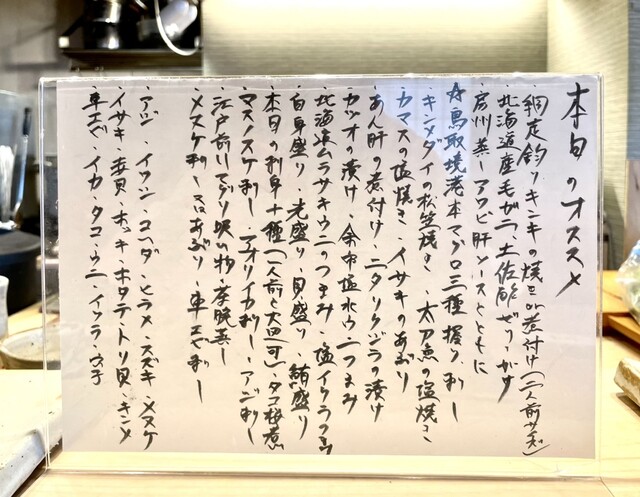 本日のオススメ
・網走釣りキンキの焼き or 煮付け(二人前サイズ)
・北海道産毛がに、土佐酢ぜりーがけ
・房州蒸しアワビ肝ソースとともに
☆鳥取境港本マグロ三種握り、刺し
・キンメダイの松笠焼き ・太刀魚の塩焼き
・カマスの塩焼き ・イサキのあぶり
・あん肝の煮付け ・ニタリクジラの漬け
・カツオの漬け ・余市塩水ウニつまみ
・北海道ムラサキウニのつまみ ・塩イクラつまみ
・白身盛り ・光盛り ・貝盛り ・鮪盛り
・本日の刺身十種(一人前と大皿可) ・タコ桜煮
・マスノスケ刺し ・アオリイカ刺し ・アジ刺し
・江戸前ハマグリ吸い物 ・茶碗蒸し
・メヌケ刺し さはあぶり ・車エビ刺し
・アジ ・イワシ ・コハダ ・ヒラメ ・スズキ ・メヌケ
・イサキ ・赤貝 ・ホッキ ・ホタテ ・トリ貝 ・キンメ
・車エビ ・イカ ・タコ ・ウニ ・イクラ ・玉子